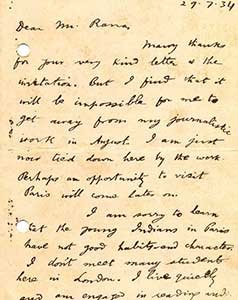 29-7-34
Dear Mr. Rana,
Many thanks
for your very kind letter & the
invitation. But I find that it
will be impossible for me to
get away from my journalistic
work in August. I am just
now tied down here by the work.
Perhaps an opportunity to visit
Paris will come later on.
I am sorry to learn
that the young Indians in Paris
have not good habits and character.
I don't meet many students
here in London. I live quietly
and am engaged in reading and